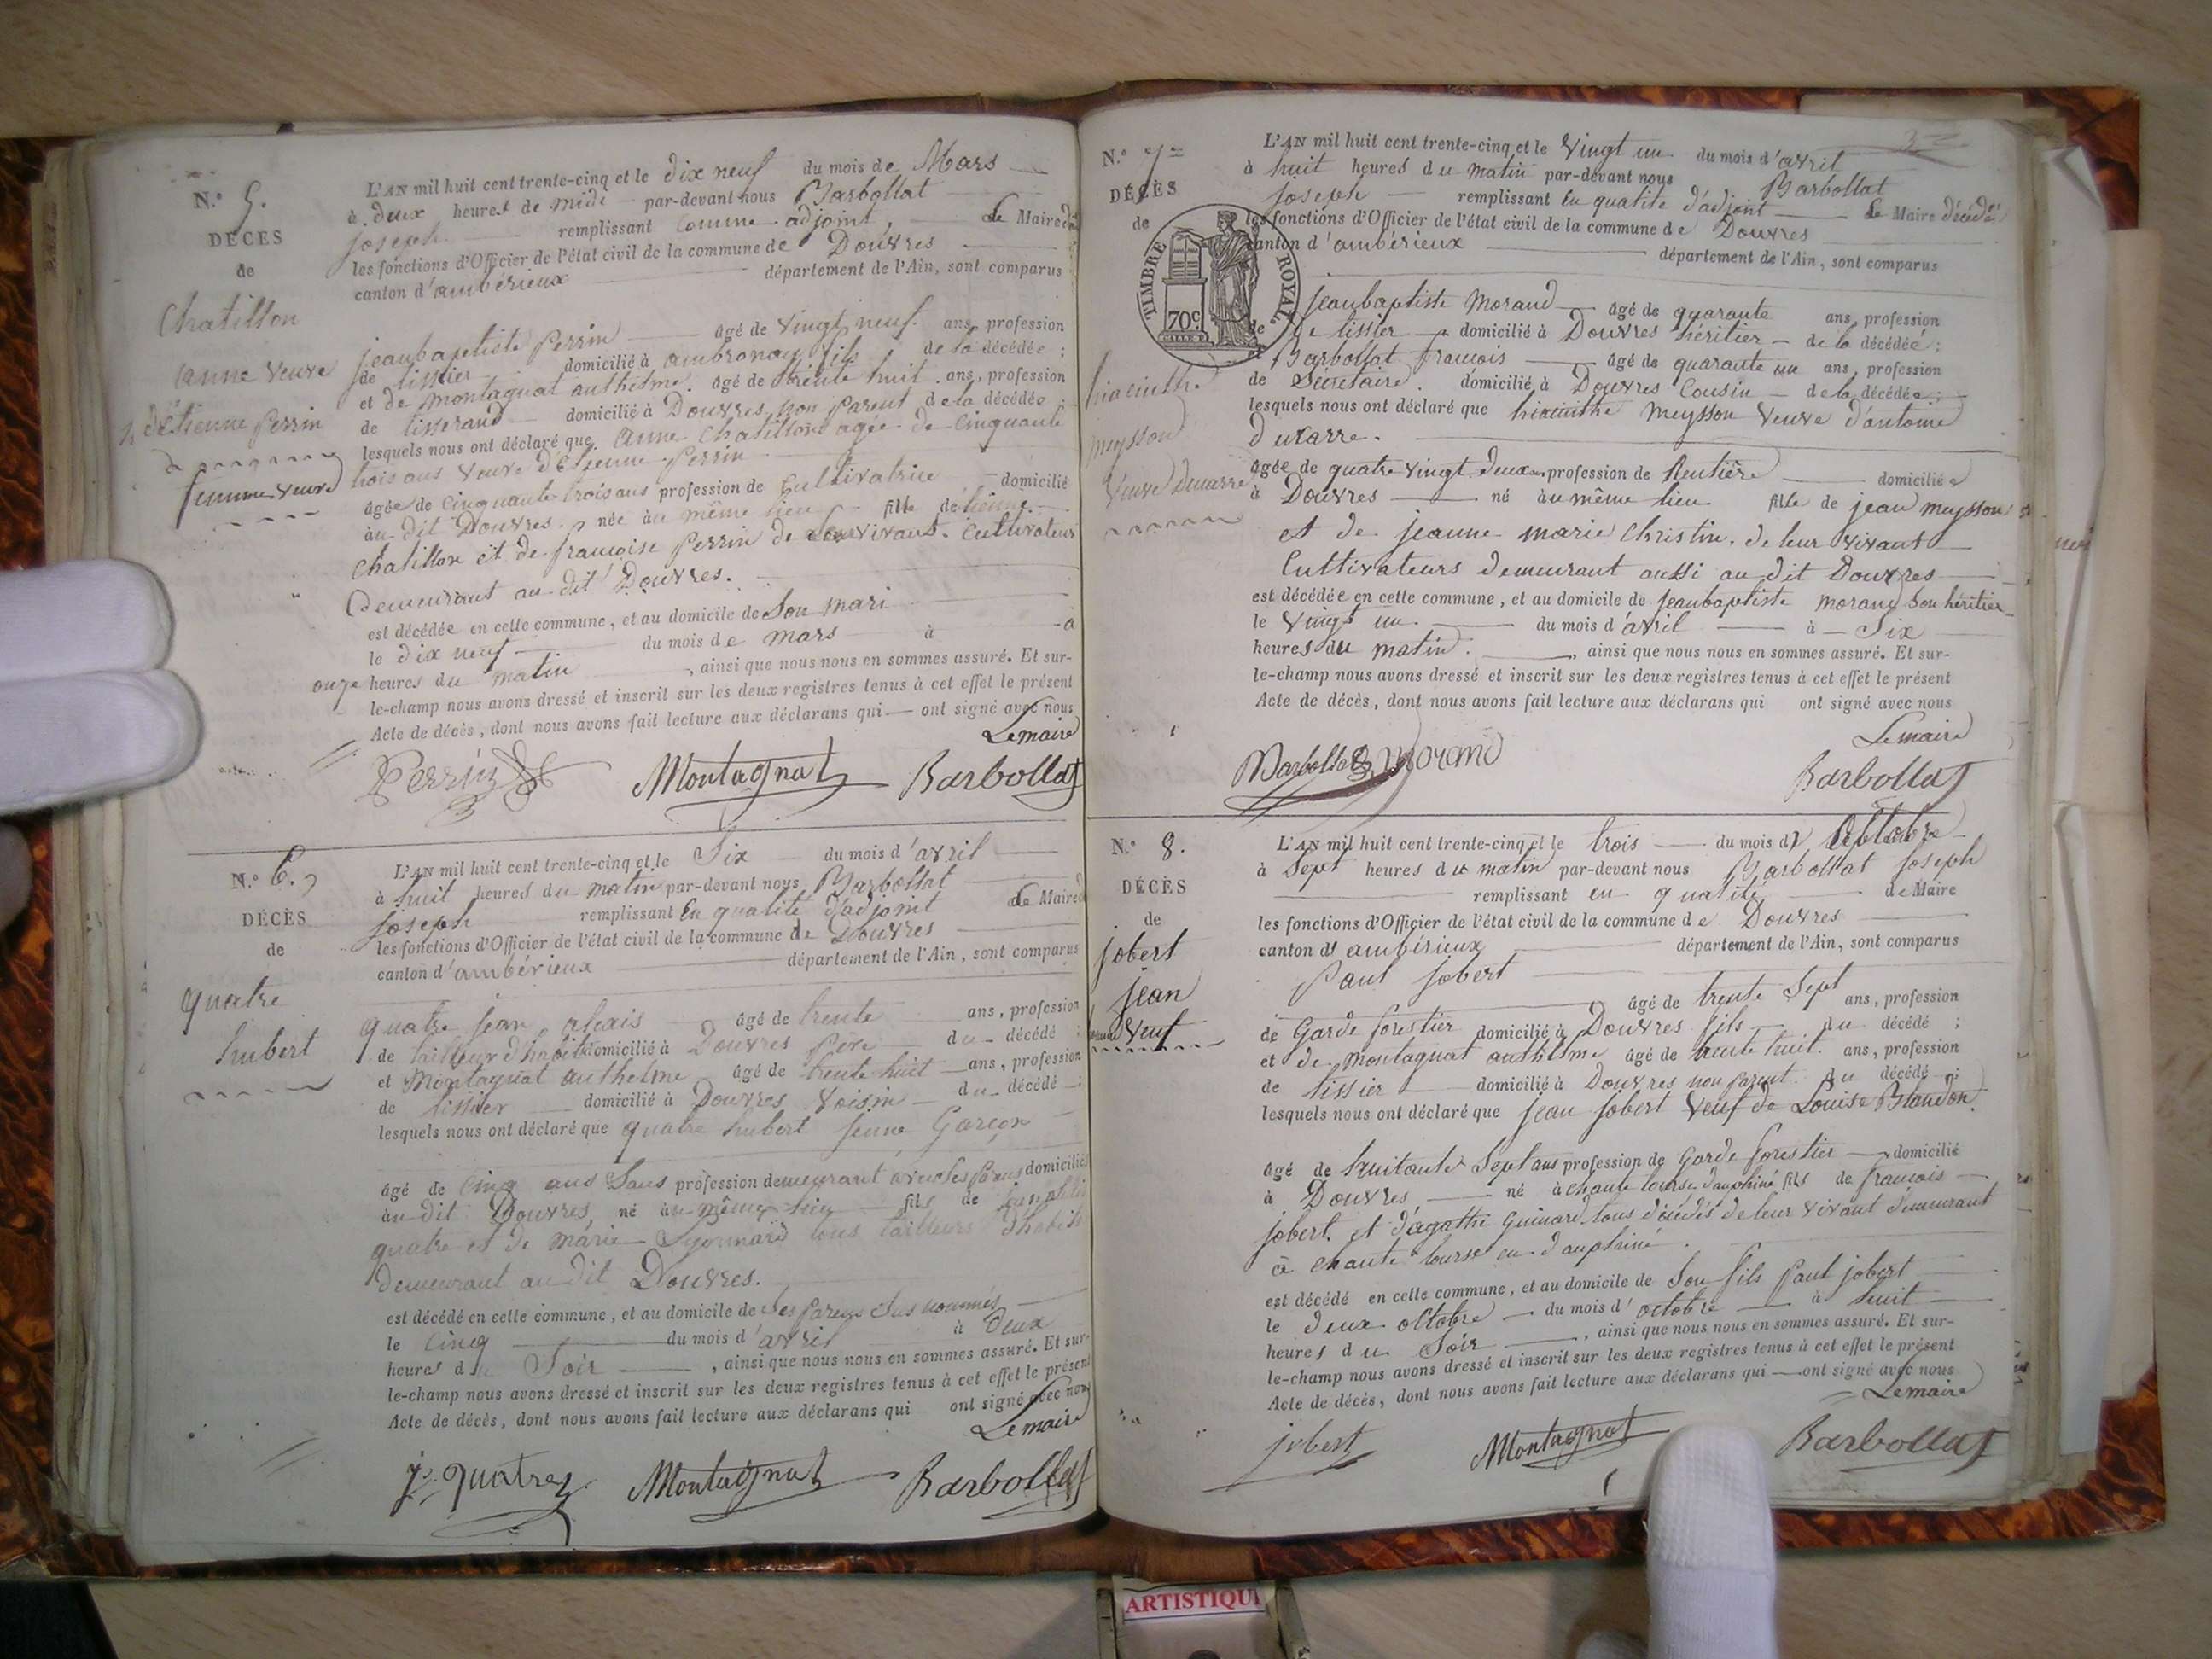 N.º 5.
DÉCÈS
de
Chatillon
anne veuve
d'étienne Perrin
femme veuve
L'AN mil huit cent trente-cinq et le dix neuf du mois de Mars
à deux heures de midi par-devant nous Barbollat
joseph remplissant comme adjoint, Le Maire
les fonctions d'Officier de l'état civil de la commune de Douvres
canton d'ambérieux département de l'Ain, sont comparus
jeanbaptiste Perrin âgé de vingt neuf ans, profession
de tissier domicilié à ambronay fils de la décédée ;
et de montagnat anthelme. âgé de trente huit ans, profession
de tisserand domicilié à Douvres non parent de la décédée ;
lesquels nous ont déclaré que anne Chatillon agée de Cinquante
trois ans veuve d'Etienne Perrin
âgée de Cinquante trois ans profession de Cultivatrice domicilié
au dit Douvres née au même lieu fille détienne
Chatillon et de françoise Perrin de leur vivant Cultivateur
Demeurant au dit Douvres.
est décédée en cette commune, et au domicile de Son mari
le dix neuf du mois de mars à
onze heures du matin, ainsi que nous nous en sommes assuré. Et sur-
le-champ nous avons dressé et inscrit sur les deux registres tenus à cet effet le présent
Acte de décès, dont nous avons fait lecture aux déclarans qui ont signé avec nous
Lemaire
Perrin Montagnat Barbollat
N.º 6.
DÉCÈS
de
quatre
hubert
L'AN mil huit cent trente-cinq et le Six du mois d'avril
à huit heures du matin par-devant nous Barbollat
joseph remplissant En qualité d'adjoint Le Maire
les fonctions d'Officier de l'état civil de la commune de Douvres
canton d'ambérieux département de l'Ain, sont comparus
quatre jean alexis âgé de trente ans, profession
de tailleur d'habit domicilié à Douvres Pere du décédé ;
et Montagnat anthelme âgé de trente huit ans, profession
de tissier domicilié à Douvres voisin du décédé ;
lesquels nous ont déclaré que quatre hubert jeune Garçon
âgé de cinq ans Sans profession demeurant avec ses Parens domicilié
au dit Douvres né au même lieu fils de
quatre et de marie tous tailleurs d'habit
demeurant au dit Douvres.
est décédé en cette commune, et au domicile de Ses Parens Sus nommés
le Cinq du mois d'avril à Deux
heures du Soir, ainsi que nous nous en sommes assuré. Et sur-
le-champ nous avons dressé et inscrit sur les deux registres tenus à cet effet le présent
Acte de décès, dont nous avons fait lecture aux déclarans qui ont signé avec nous
Lemaire
quatre Montagnat Barbollat
N.º 7
DÉCÈS
de
hiacinthe
meysson
Veuve Ducarre
TIMBRE ROYAL.
70c
L'AN mil huit cent trente-cinq et le Vingt un du mois d'avril
à huit heures du matin par-devant nous Barbollat
joseph remplissant En qualité d'adjoint Le Maire décédé
les fonctions d'Officier de l'état civil de la commune de Douvres
canton d'ambérieux département de l'Ain, sont comparus
jeanbaptiste Morand âgé de quarante ans, profession
de tissier domicilié à Douvres héritier de la décédée ;
et Barbollat françois âgé de quarante un ans, profession
de Sécretaire. domicilié à Douvres Cousin de la décédée ;
lesquels nous ont déclaré que hiacinthe meysson veuve d'antoine
ducarre.
âgée de quatre vingt deux ans profession de Rentière domiciliée
à Douvres né au même lieu fille de jean meysson
et de jeanne marie Christin. de leur vivant
Cultivateurs demeurant aussi au dit Douvres
est décédée en cette commune, et au domicile de jeanbaptiste morand Son héritier
le Vingt un du mois d'avril à Six
heures du matin, ainsi que nous nous en sommes assuré. Et sur-
le-champ nous avons dressé et inscrit sur les deux registres tenus à cet effet le présent
Acte de décès, dont nous avons fait lecture aux déclarans qui ont signé avec nous
Lemaire
Barbollat morand Barbollat
N.º 8.
DÉCÈS
de
jobert
jean
veuf
L'AN mil huit cent trente-cinq et le trois du mois d'Octobre
à Sept heures du matin par-devant nous Barbollat joseph
remplissant en qualité de Maire
les fonctions d'Officier de l'état civil de la commune de Douvres
canton d'ambérieux département de l'Ain, sont comparus
Paul jobert
âgé de trente Sept ans, profession
de Garde forestier domicilié à Douvres fils du décédé ;
et de montagnat anthelme âgé de trente huit. ans, profession
de tissier domicilié à Douvres non parent. du décédé ;
lesquels nous ont déclaré que jean jobert Veuf de Louise Blandon.
âgé de huitante Sept ans profession de Garde forestier domicilié
à Douvres né à chante lourse dauphiné fils de françois
jobert. et d'agathe Guinard tous décédés de leur vivant demeurant
à chante lourse en dauphiné.
est décédé en cette commune, et au domicile de Son fils Paul jobert
le deux octobre du mois d'octobre à huit
heures du Soir, ainsi que nous nous en sommes assuré. Et sur-
le-champ nous avons dressé et inscrit sur les deux registres tenus à cet effet le présent
Acte de décès, dont nous avons fait lecture aux déclarans qui ont signé avec nous
Lemaire
jobert Montagnat Barbollat
ARTISTIQU